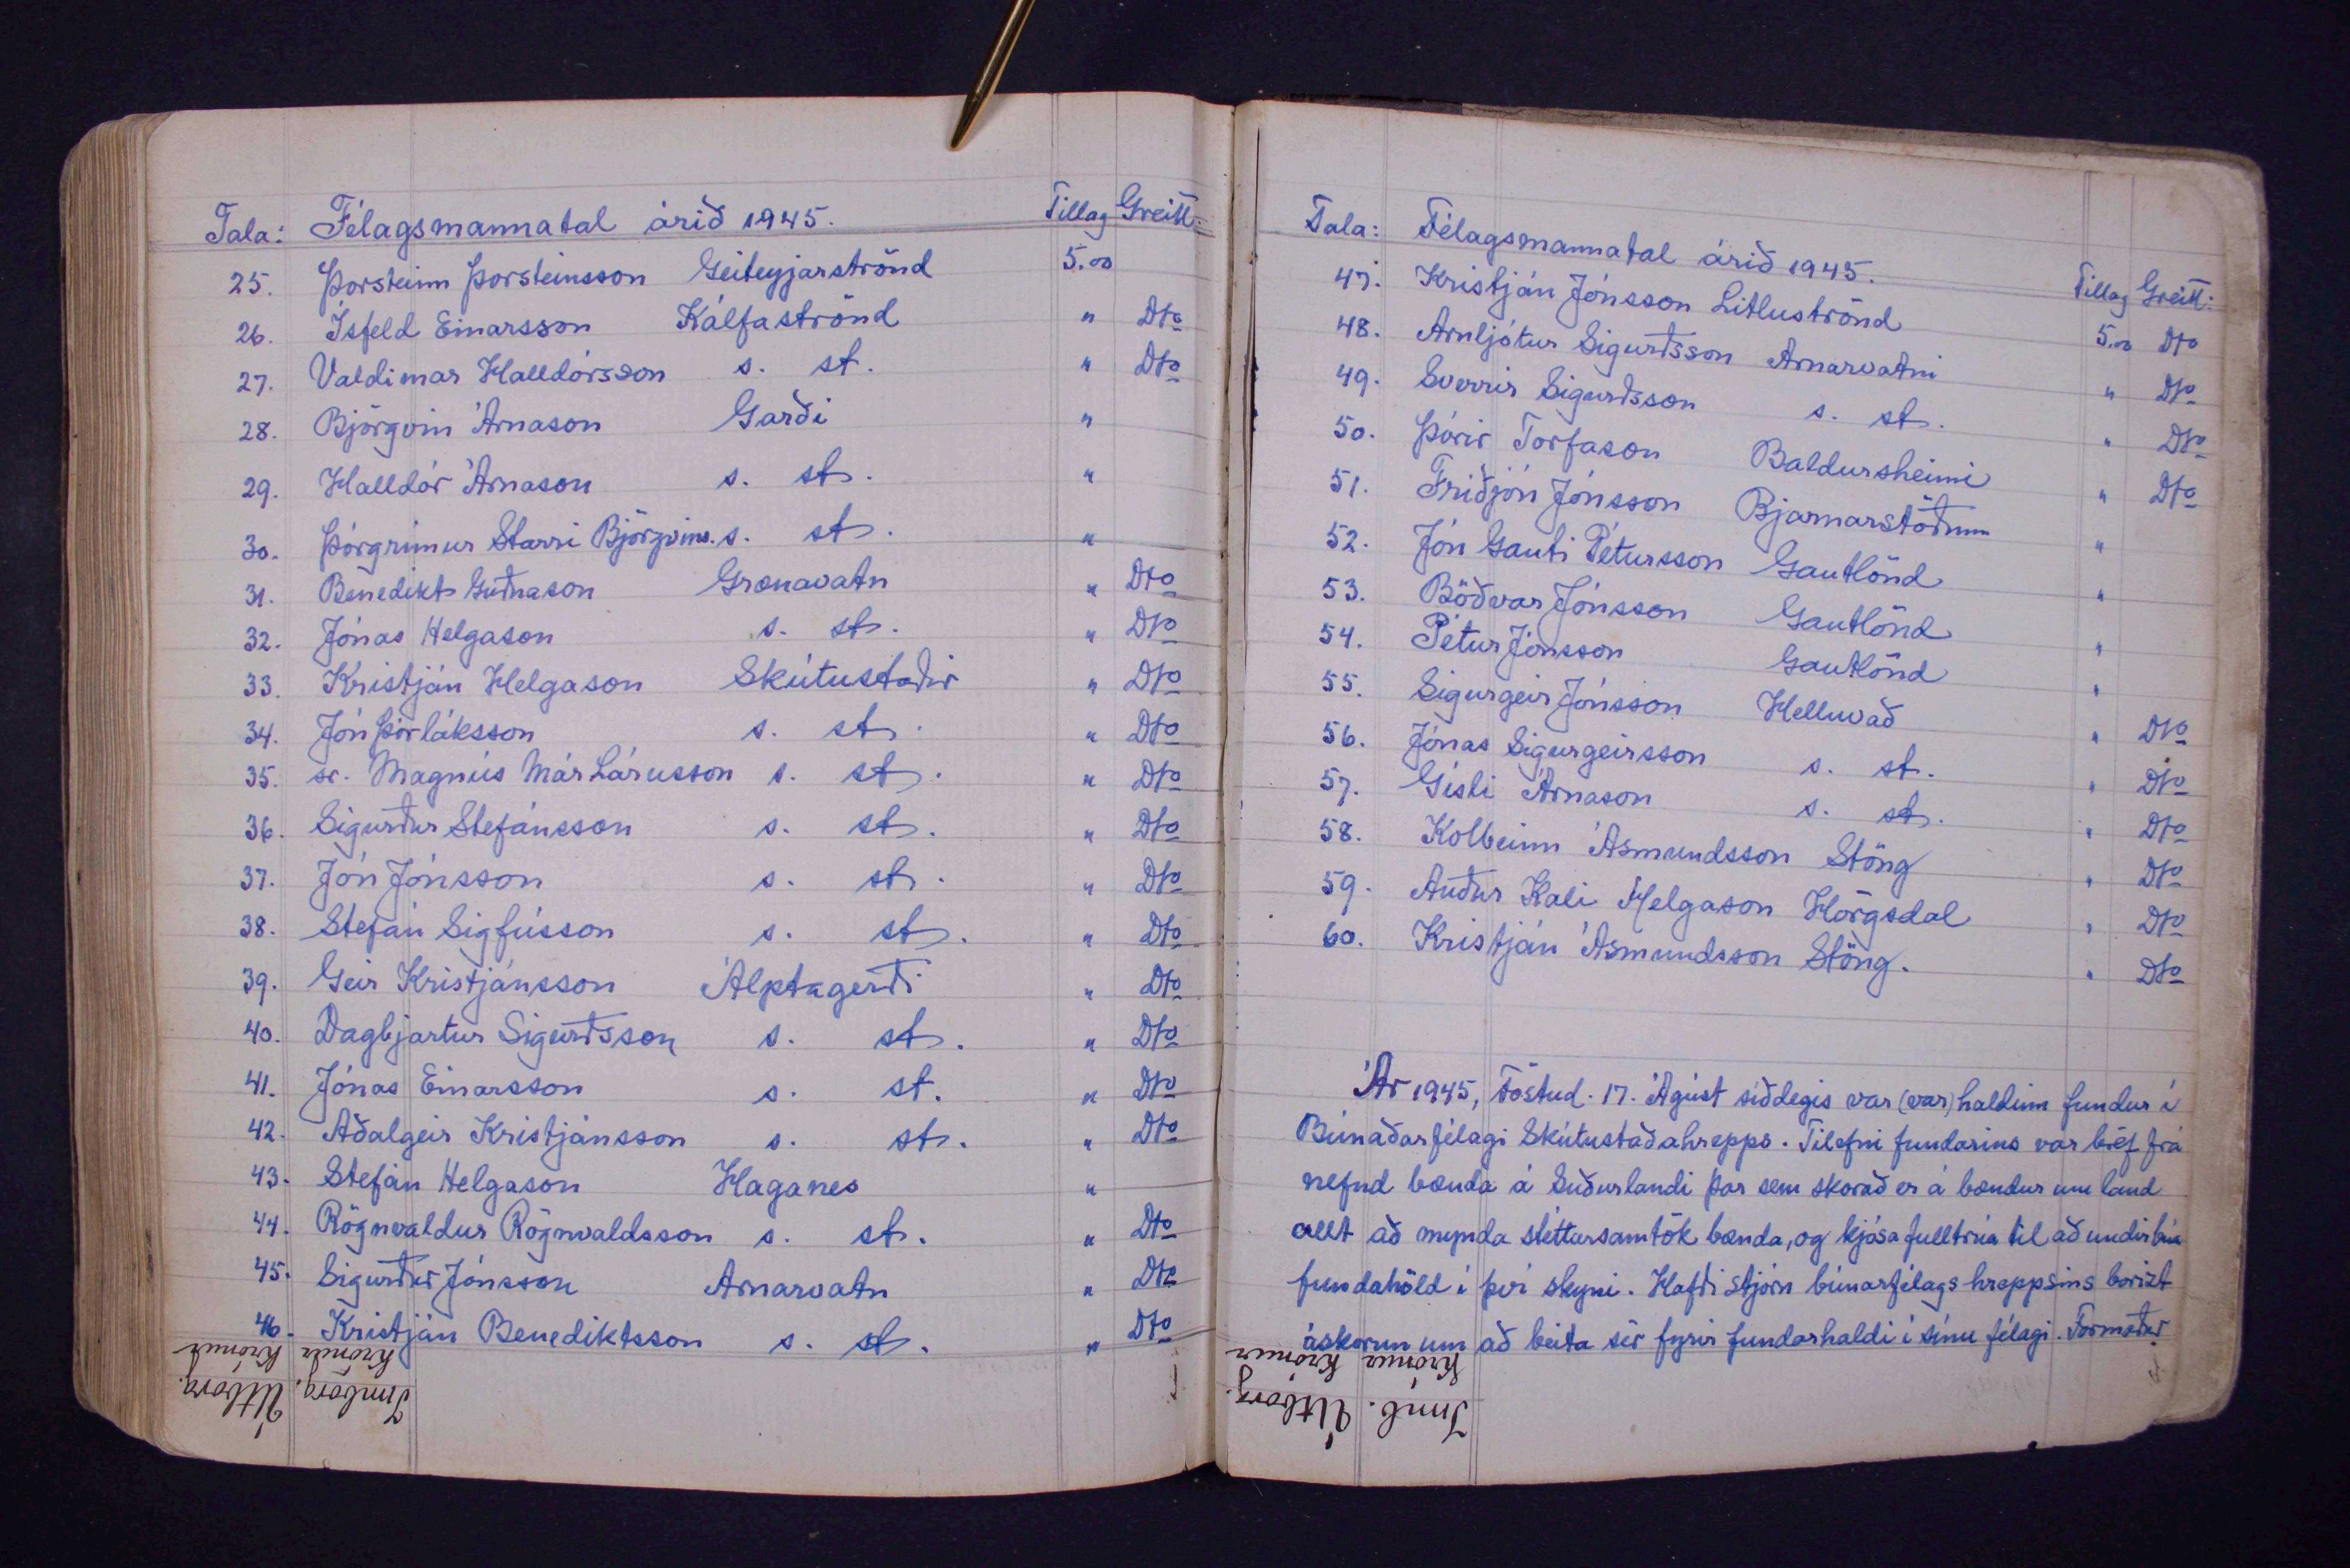 Tala: Félagsmannatal árið 1945. Tillag Greitt:
25. Þorsteinn Þorsteinsson Geiteyjarströnd 5.00
26. Ísfeld Einarsson Kálfaströnd " Dto
27. Valdimar Halldórsson s. st. " Dto
28. Björgvin Árnason Garði "
29. Halldór Árnason s. st. "
30. Þorgrímur Starri Björgvins. s. st. "
31. Benedikt Guðnason Grænavatn " Dto
32. Jónas Helgason s. st. " Dto
33. Kristján Helgason Skútustaðir " Dto
34. Jón Þorláksson s. st. " Dto
35. sr. Magnús Már Lárusson s. st. " Dto
36. Sigurður Stefánsson s. st. " Dto
37. Jón Jónsson s. st. " Dto
38. Stefán Sigfússon s. st. " Dto
39. Geir Kristjánsson Álptagerði " Dto
40. Dagbjartur Sigurðsson s. st. " Dto
41. Jónas Einarsson s. st. " Dto
42. Aðalgeir Kristjánsson s. st. " Dto
43. Stefán Helgason Haganes "
44. Rögnvaldur Rögnvaldsson s. st. " Dto
45. Sigurður Jónsson Arnarvatn " Dto
46. Kristján Benediktsson s. st. " Dto
Innborg. Útborg.
Krónur Krónur
Tala: Félagsmannatal árið 1945. Tillag Greitt:
47. Kristján Jónsson Litluströnd 5.00 Dto
48. Arnljótur Sigurðsson Arnarvatni " Dto
49. Sverrir Sigurðsson s. st. " Dto
50. Þórir Torfason Baldursheimi " Dto
51. Friðjón Jónsson Bjarnarstöðum "
52. Jón Gauti Pétursson Gautlönd "
53. Böðvar Jónsson Gautlönd "
54. Pétur Jónsson Gautlönd "
55. Sigurgeir Jónsson Helluvað " Dto
56. Jónas Sigurgeirsson s. st. " Dto
57. Gísli Árnason s. st. " Dto
58. Kolbeinn Ásmundsson Stöng " Dto
59. Auður Kali Helgason Hörgsdal " Dto
60. Kristján Ásmundsson Stöng. " Dto
Ár 1945, Föstud. 17. Ágúst síðdegis var (var) haldinn fundur í
Búnaðarfélagi Skútustaðahrepps. Tilefni fundarins var bréf frá
nefnd bænda á Suðurlandi þar sem skorað er á bændur um land
allt að mynda stéttarsamtök bænda, og kjósa fulltrúa til að undirbúa
fundahöld í því skyni. Hafði stjórn búnarfélags hreppsins borizt
áskorun um að beita sér fyrir fundarhaldi í sínu félagi. Formaður
Innb. Útborg.
Krónur Krónur